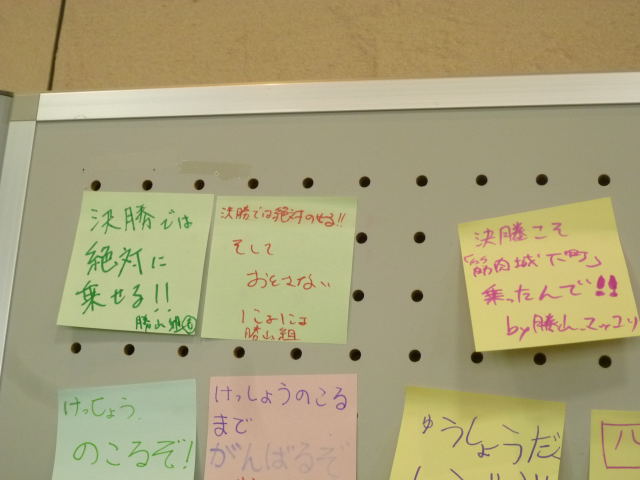 決勝では
絶対に
乗せる!!
勝山組
決勝では絶対のせる!!
そして
おとさない
勝山組
決勝こそ
「筋肉城下町」
乗ったんで!!
by勝山マッコリ
けっしょう
のこるぞ!
けっしょうのこる
まで
がんばるぞ
ゆうしょうだ